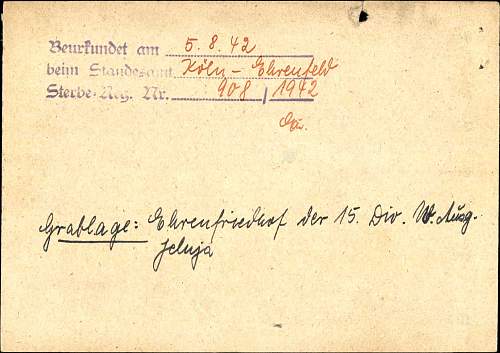 Beurkundet am 5. 8. 42
beim Standesamt Köln - Ehrenfeld
Sterbe-Reg. Nr. 908 / 1942
Grablage: Ehrenfriedhof der 15. Div. W. Ausg.
Jelnja